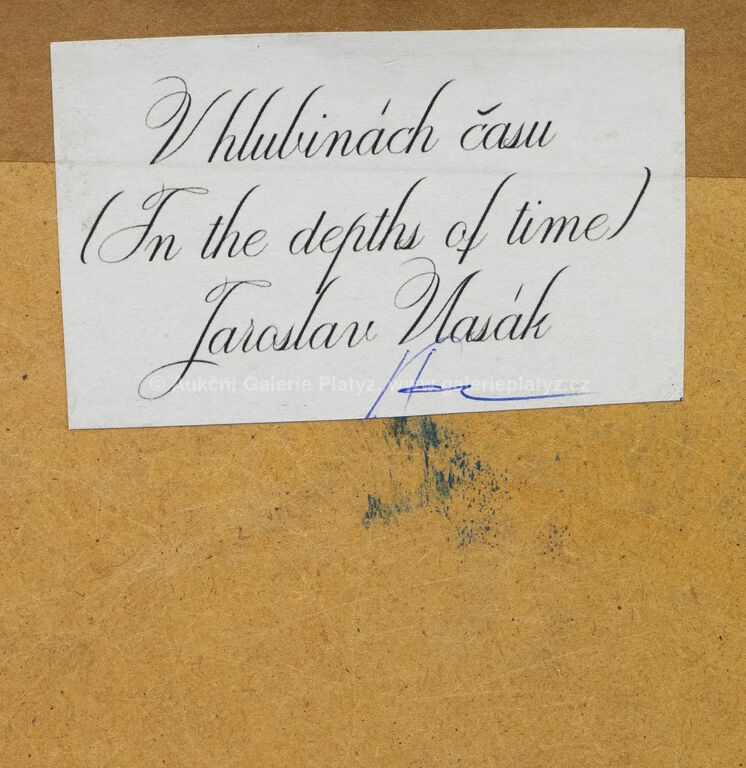 V hlubinách času
(In the depths of time)
Jaroslav Vlasák
© Aukcní Galerie Platýz, www.galerieplatyz.cz